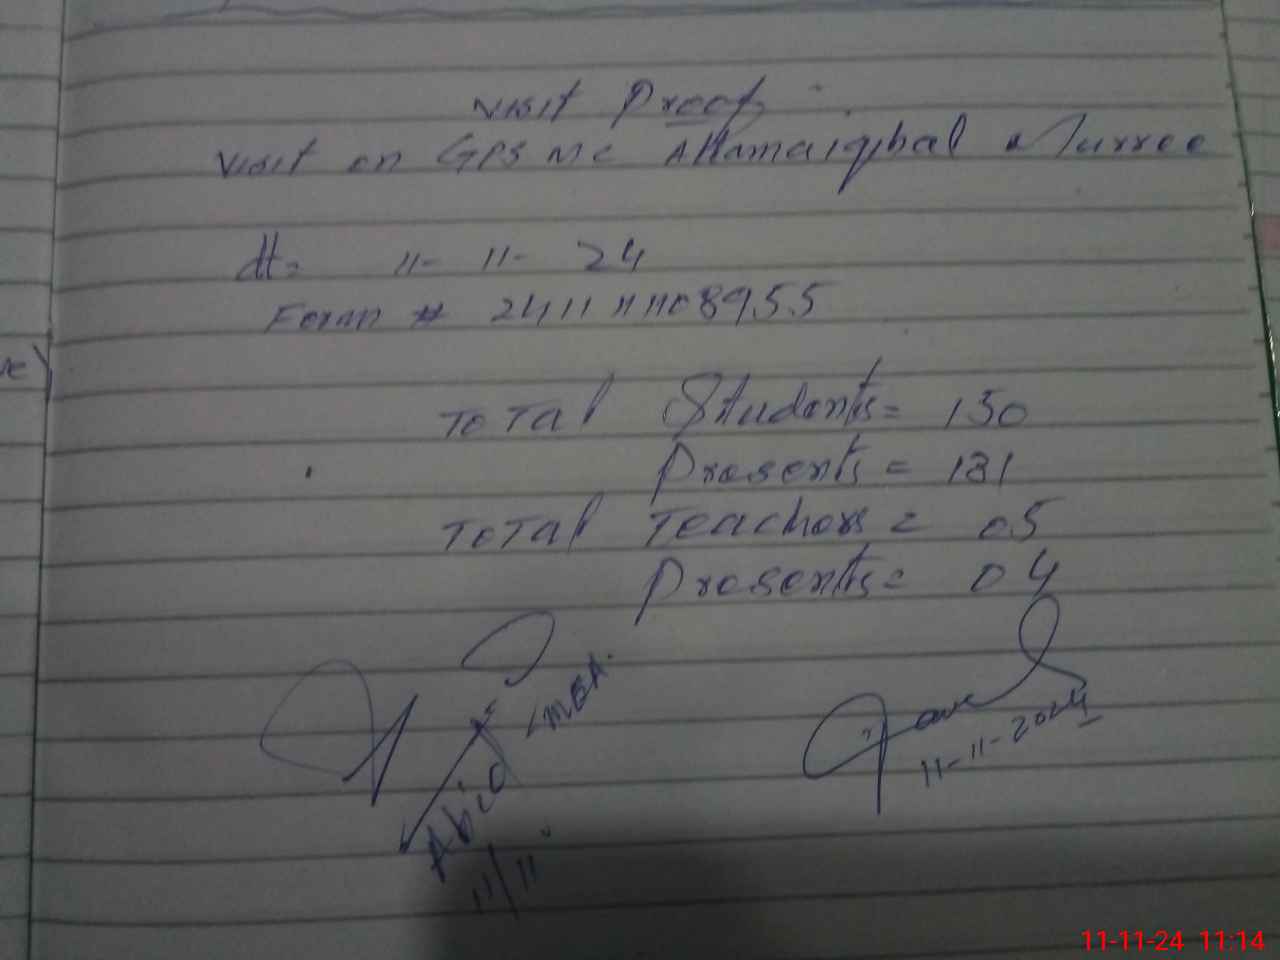 Visit Proof
Visit on GPS MC Allamaiqbal Murree
dt= 11-11-24
Foram # 2411111108955
Total Students = 150
Presents = 131
Total Teachers = 05
Presents = 04
MEA.
Abid
11/11
11-11-2024
11-11-24 11:14